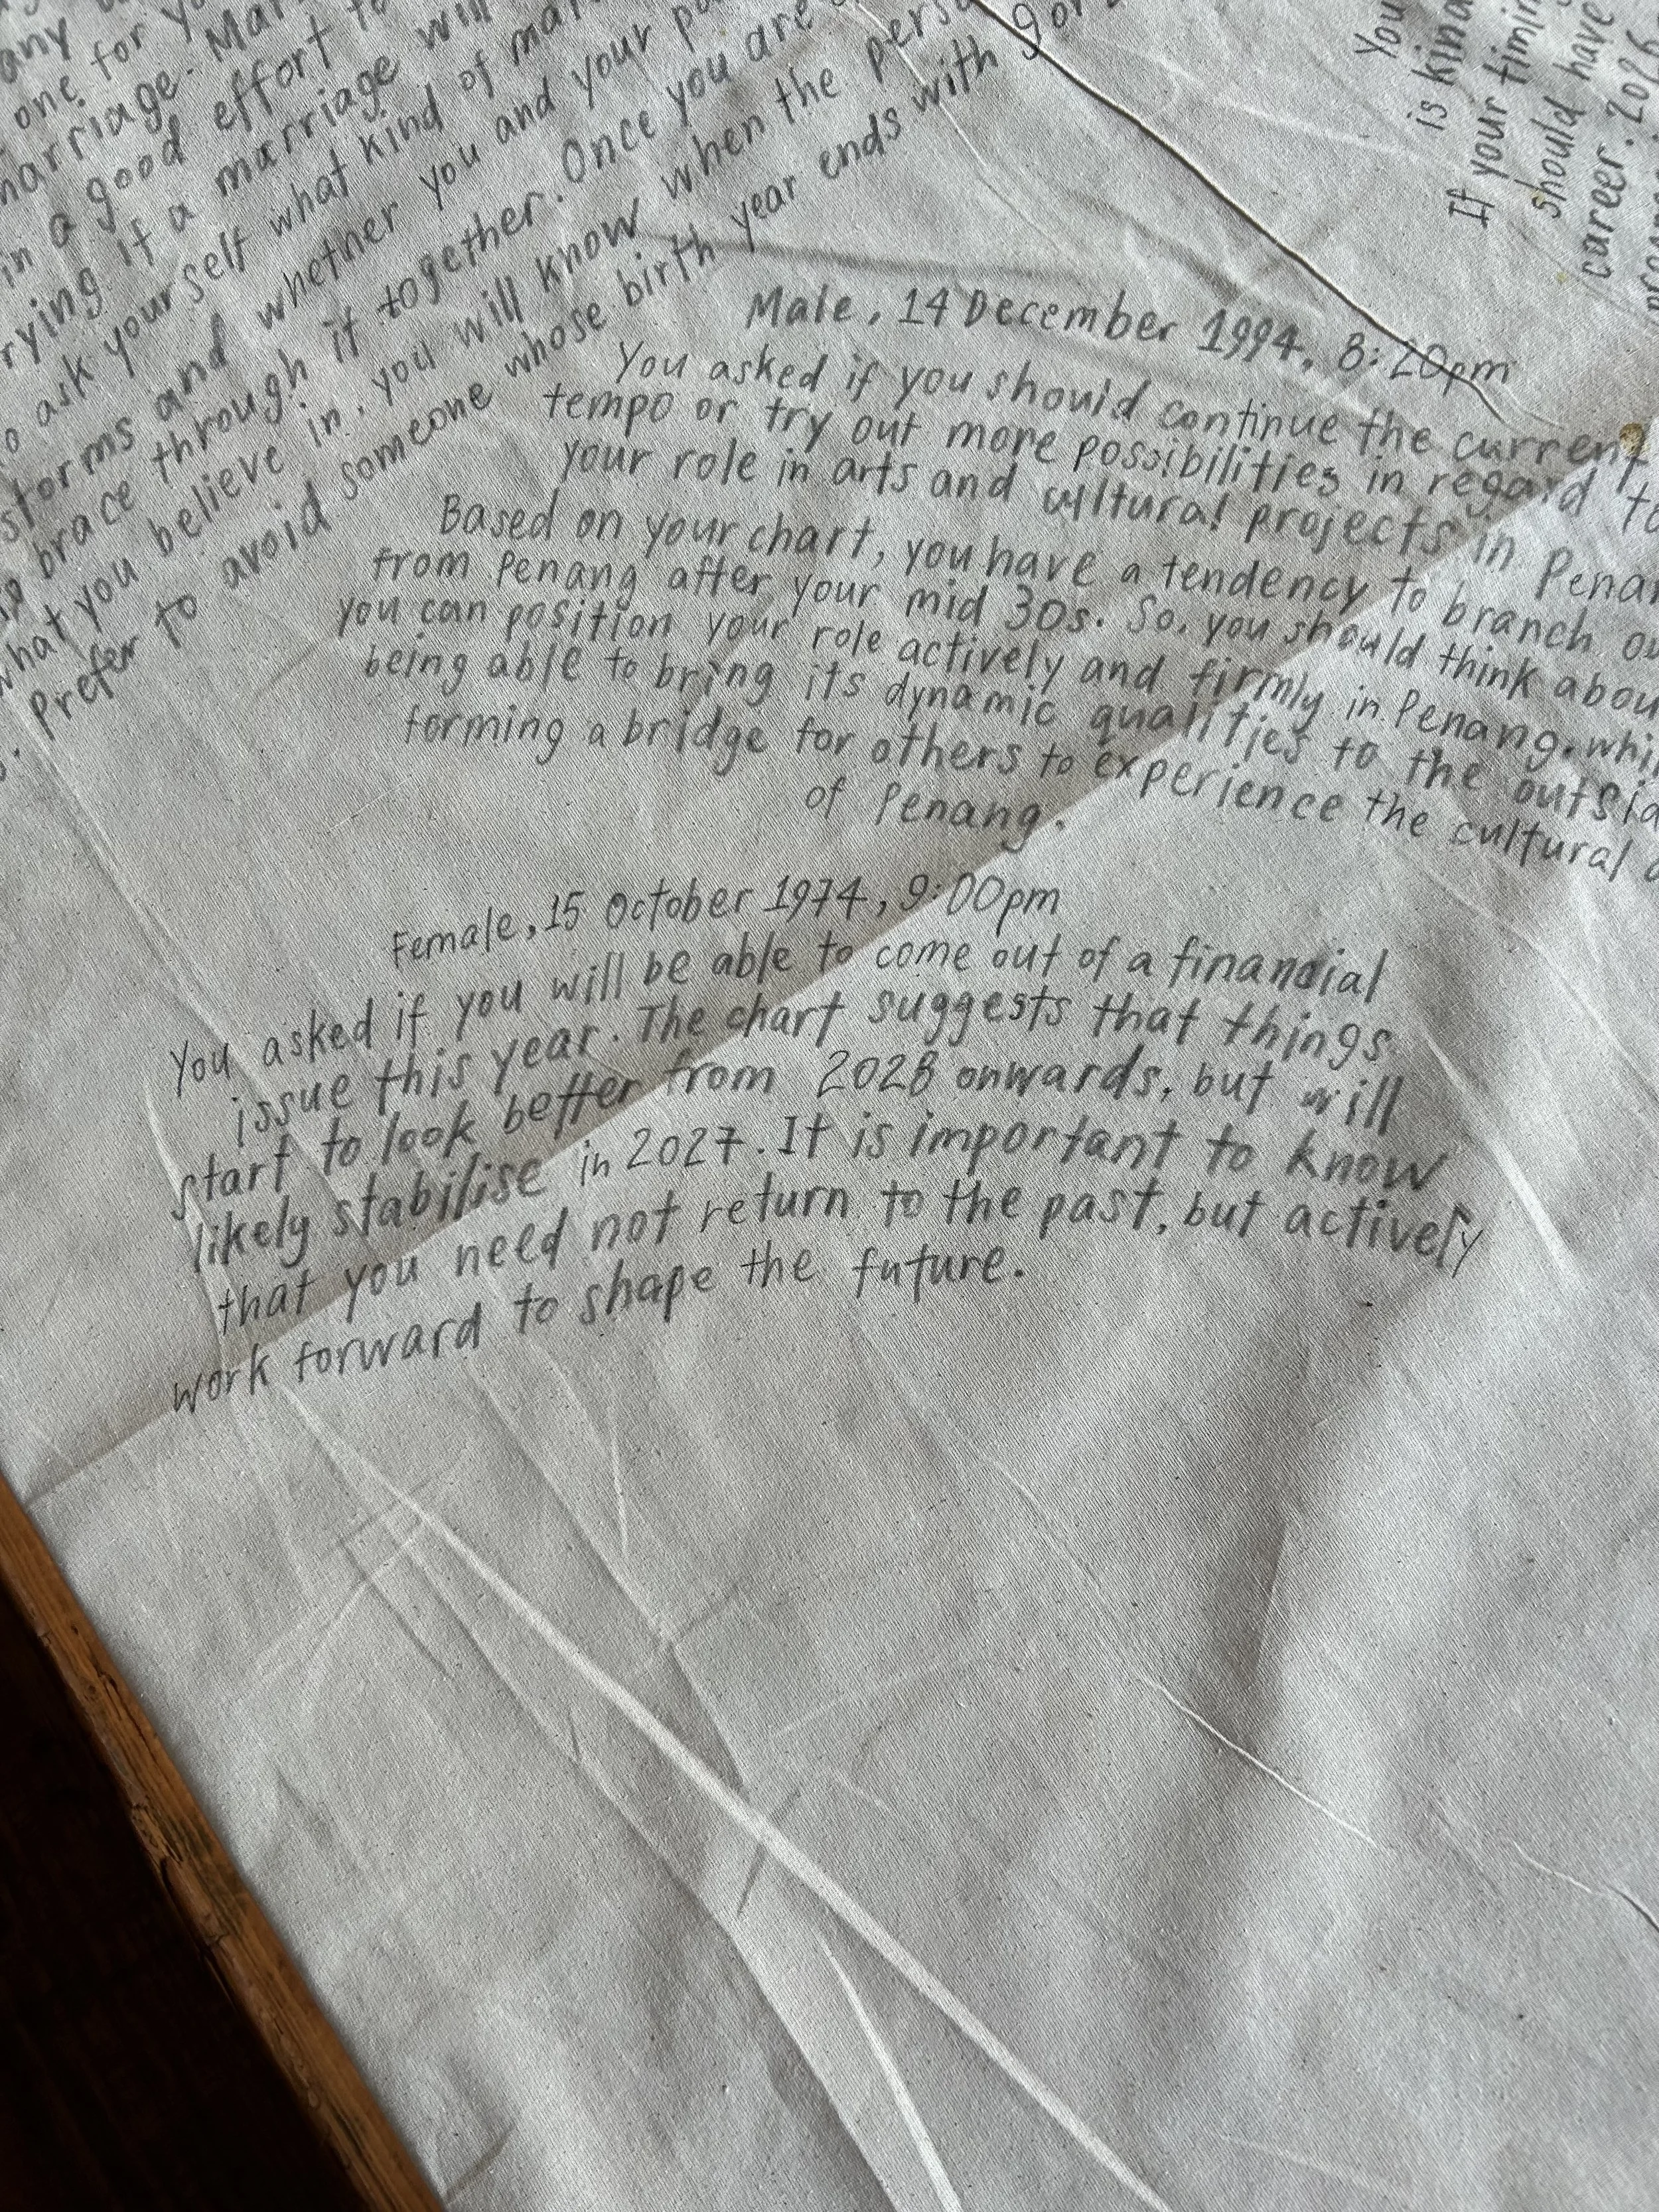 any
one for
marriage. Mar
in a good effort
rying. If a marriage will
o ask yourself what kind of mar
storms and whether you and your
to brace through it together. Once you are
what you believe in, you will know when the pers
. Prefer to avoid someone whose birth year ends with 9 or
Male, 14 December 1994, 8:20pm
You asked if you should continue the current
tempo or try out more possibilities in regard to
your role in arts and cultural projects in Penan
Based on your chart, you have a tendency to branch ou
from Penang after your mid 30s. So, you should think abou
you can position your role actively and firmly in Penang, whi
being able to bring its dynamic qualities to the outsid
forming a bridge for others to experience the cultural
of Penang.
Female, 15 October 1974, 9:00pm
You asked if you will be able to come out of a financial
issue this year. The chart suggests that things
start to look better from 2028 onwards, but will
likely stabilise in 2027. It is important to know
that you need not return to the past, but actively
work forward to shape the future.
You
is kina
If your timin
should have
career. 2026